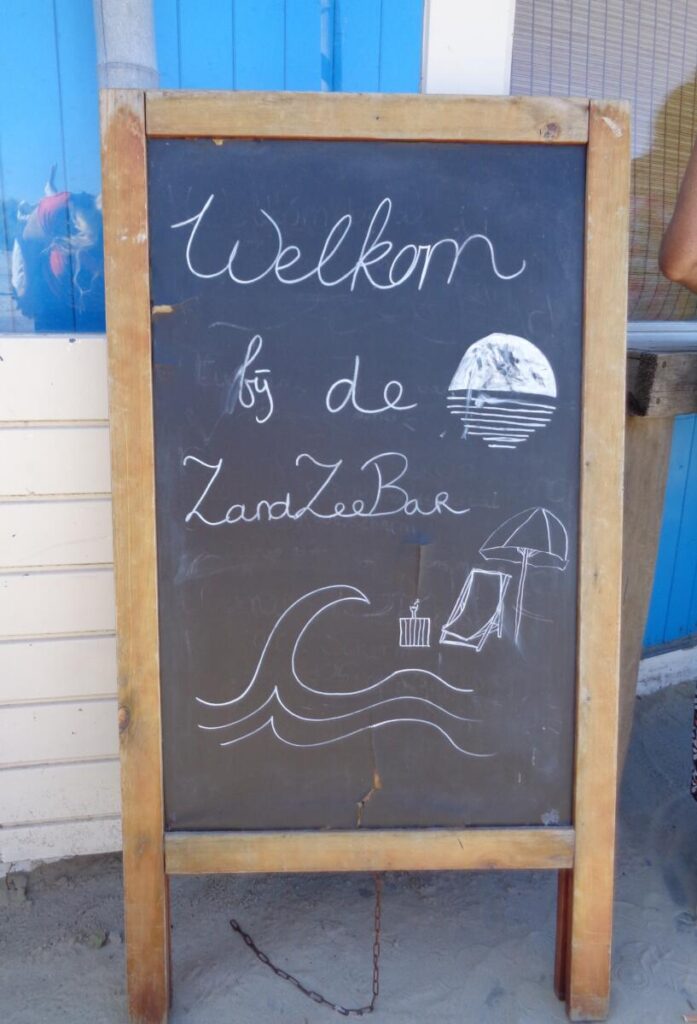 Welkom
bij de
ZandZeeBar